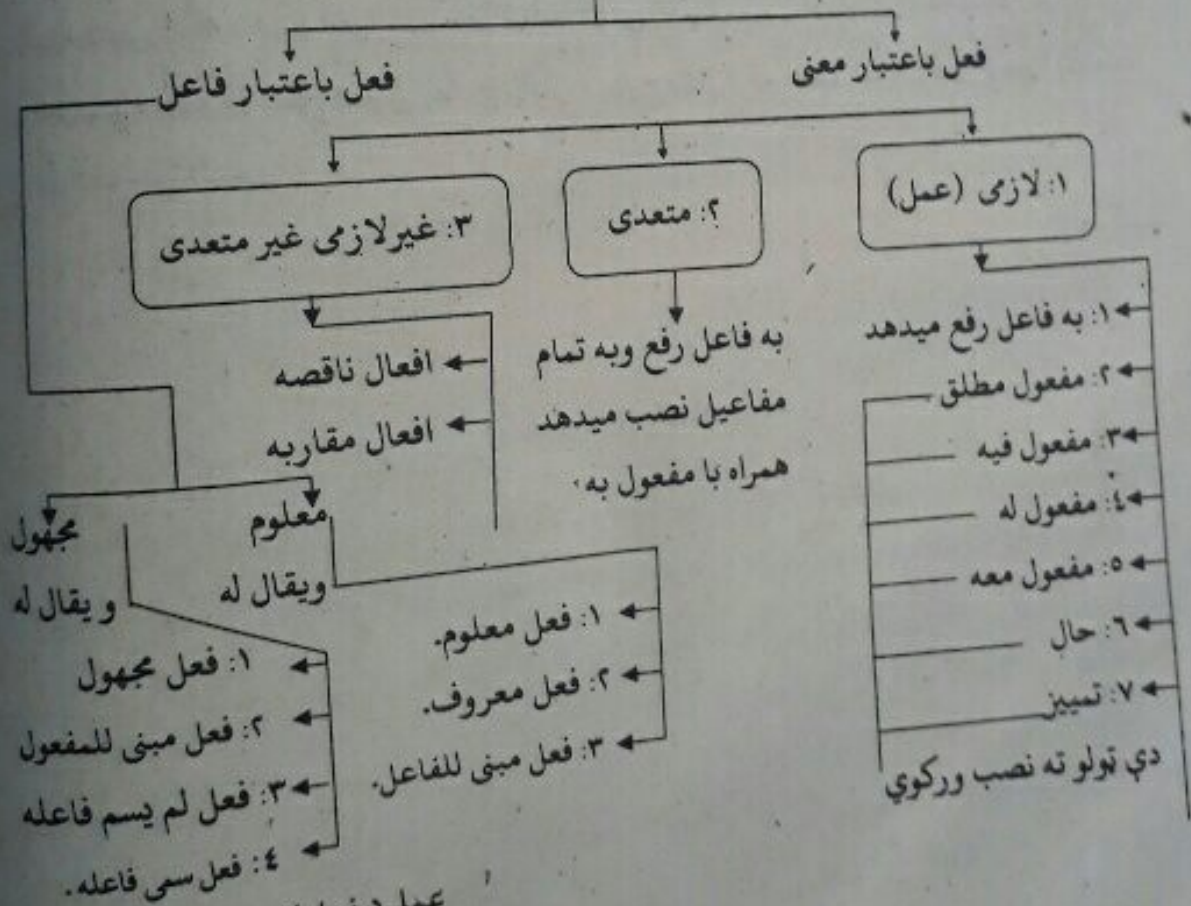 فعل باعتبار معنی
فعل باعتبار فاعل
۱: لازمی (عمل)
۲: متعدی
۳: غیرلازمی غیر متعدی
۱: به فاعل رفع میدهد
۲: مفعول مطلق
۳: مفعول فیه
٤: مفعول له
٥: مفعول معه
٦: حال
۷: تمییز
دې ټولو ته نصب ورکوي
به فاعل رفع وبه تمام
مفاعیل نصب میدهد
همراه با مفعول به
افعال ناقصه
افعال مقاربه
معلوم
ویقال له
۱: فعل معلوم.
۲: فعل معروف.
۳: فعل مبنی للفاعل.
مجهول
و یقال له
۱: فعل مجهول
۲: فعل مبنی للمفعول
۳: فعل لم یسم فاعله
٤: فعل سمی فاعله.